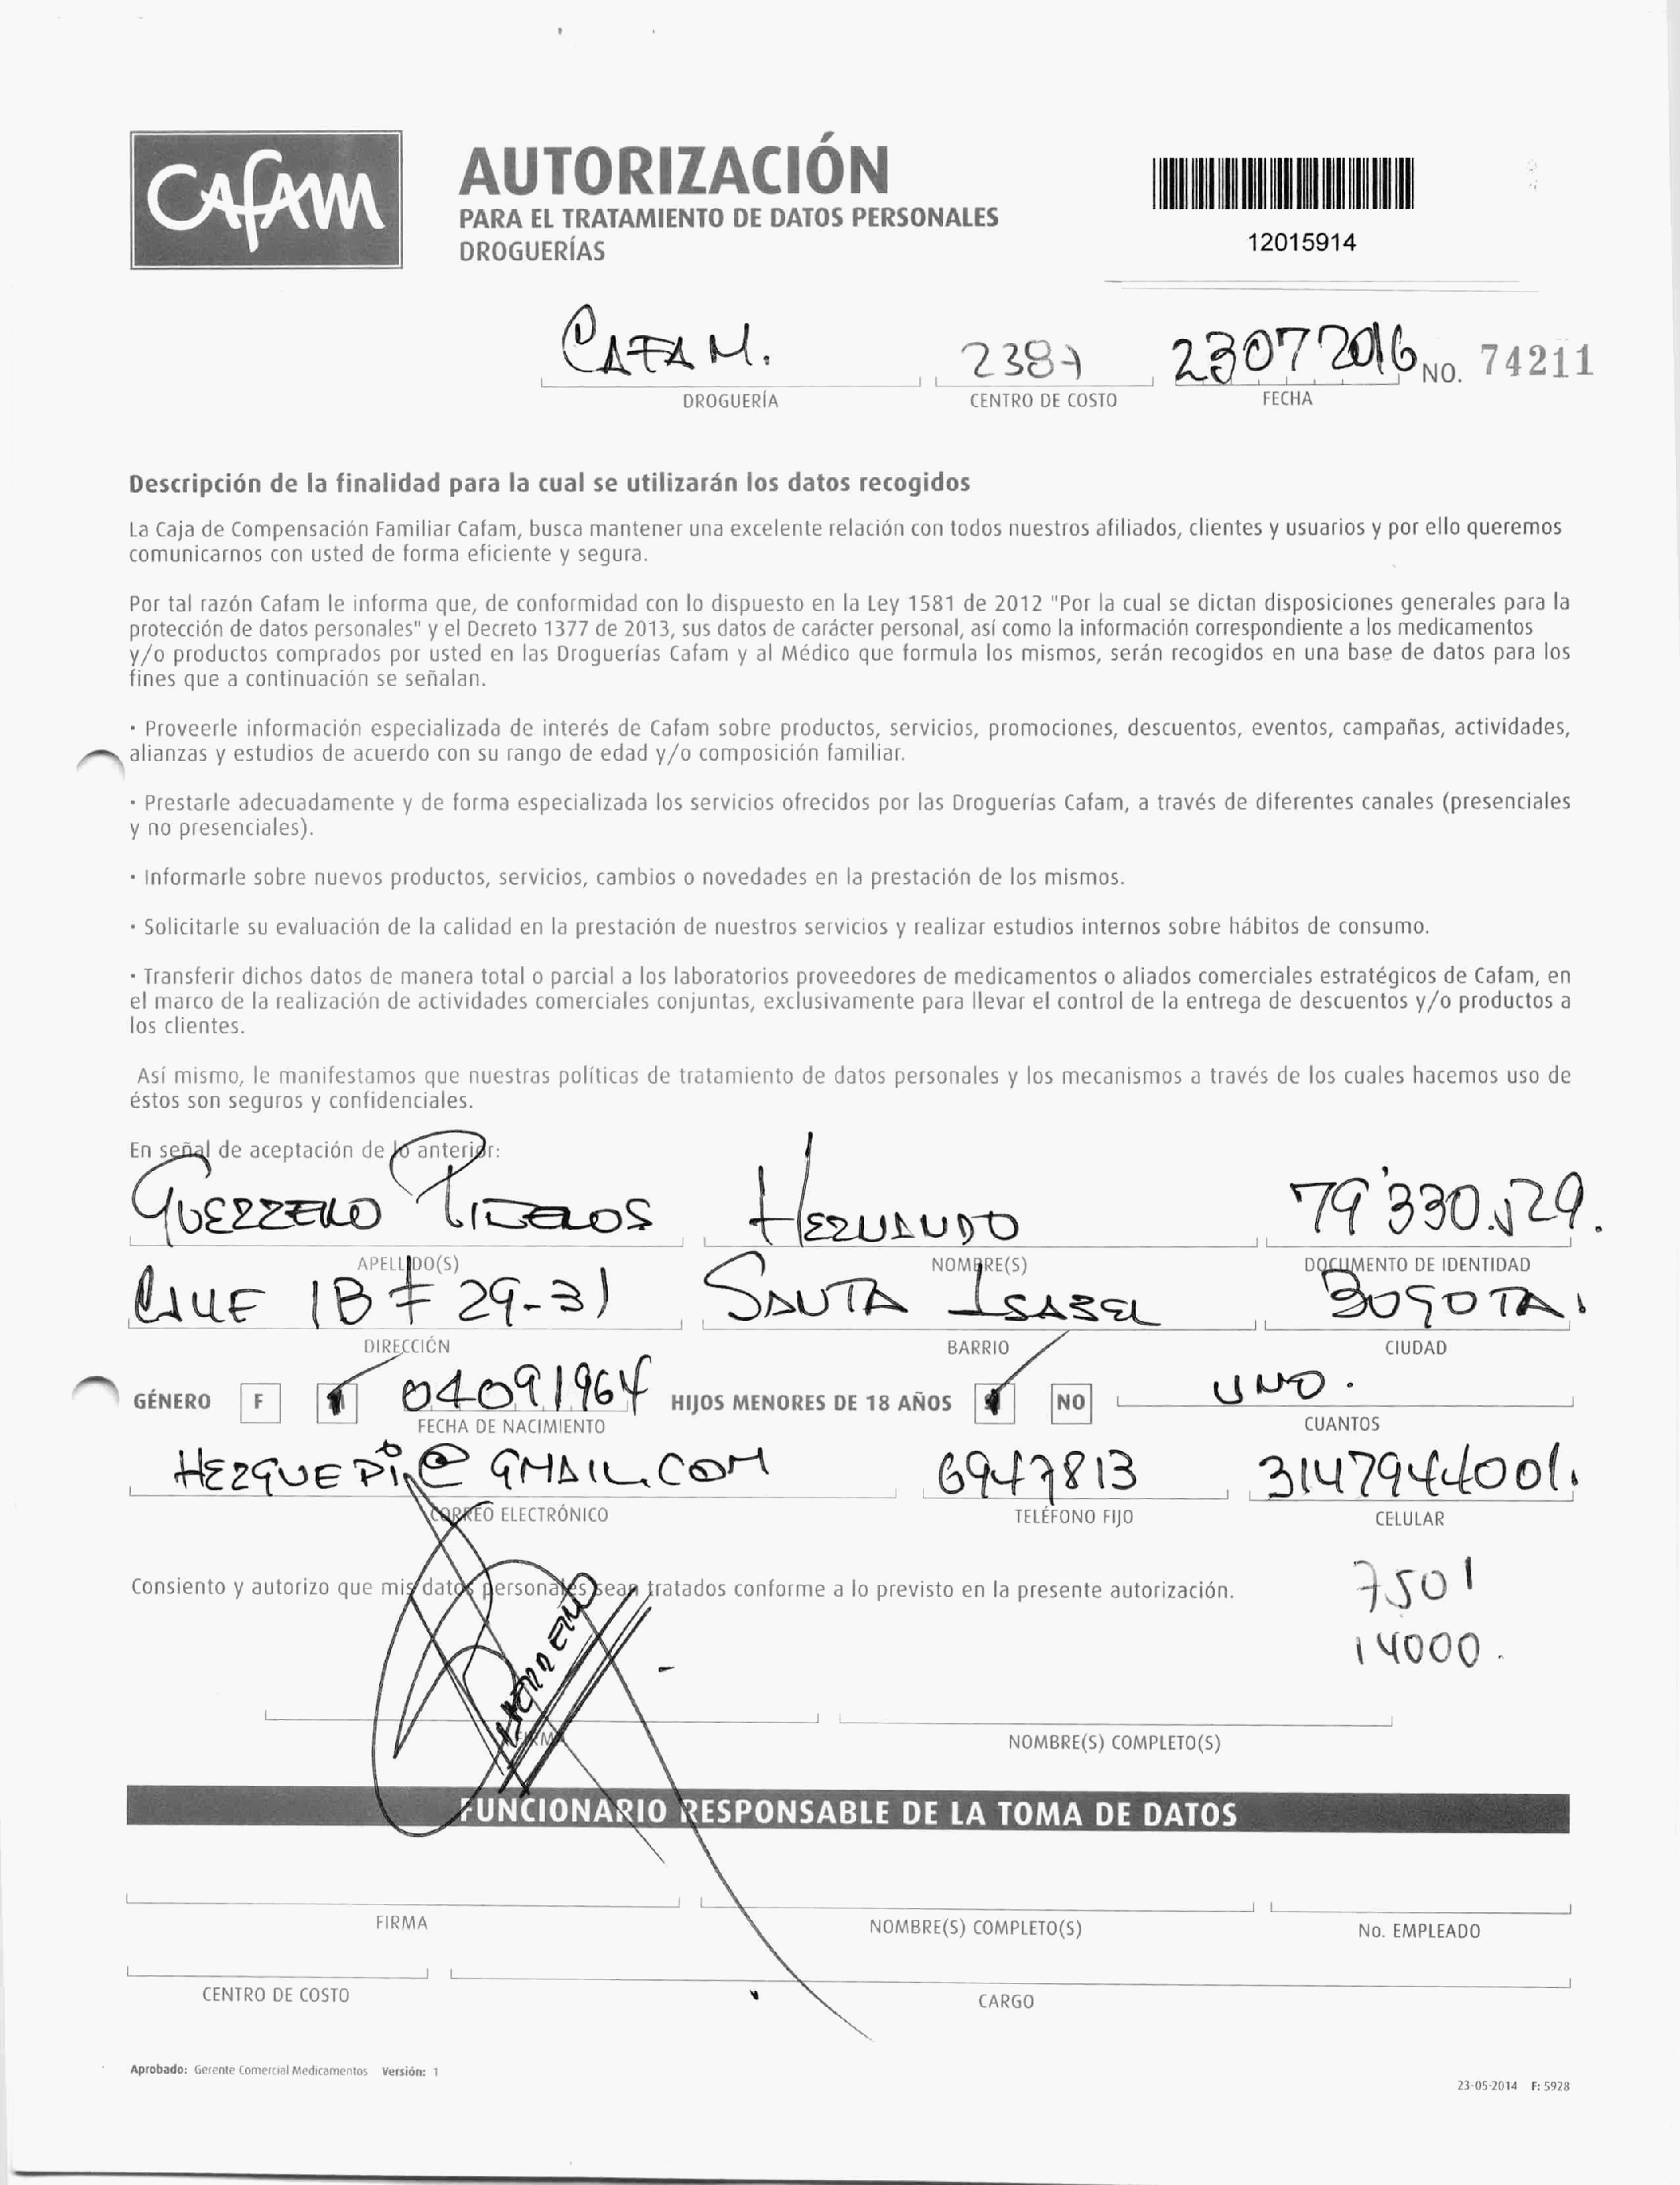 Cafam
AUTORIZACIÓN
PARA EL TRATAMIENTO DE DATOS PERSONALES
DROGUERÍAS
12015914
CAFAM. 2387 23072016 NO. 74211
DROGUERÍA CENTRO DE COSTO FECHA
Descripción de la finalidad para la cual se utilizarán los datos recogidos
La Caja de Compensación Familiar Cafam, busca mantener una excelente relación con todos nuestros afiliados, clientes y usuarios y por ello queremos
comunicarnos con usted de forma eficiente y segura.
Por tal razón Cafam le informa que, de conformidad con lo dispuesto en la Ley 1581 de 2012 "Por la cual se dictan disposiciones generales para la
protección de datos personales" y el Decreto 1377 de 2013, sus datos de carácter personal, así como la información correspondiente a los medicamentos
y/o productos comprados por usted en las Droguerías Cafam y al Médico que formula los mismos, serán recogidos en una base de datos para los
fines que a continuación se señalan.
· Proveerle información especializada de interés de Cafam sobre productos, servicios, promociones, descuentos, eventos, campañas, actividades,
alianzas y estudios de acuerdo con su rango de edad y/o composición familiar.
· Prestarle adecuadamente y de forma especializada los servicios ofrecidos por las Droguerías Cafam, a través de diferentes canales (presenciales
y no presenciales).
· Informarle sobre nuevos productos, servicios, cambios o novedades en la prestación de los mismos.
· Solicitarle su evaluación de la calidad en la prestación de nuestros servicios y realizar estudios internos sobre hábitos de consumo.
· Transferir dichos datos de manera total o parcial a los laboratorios proveedores de medicamentos o aliados comerciales estratégicos de Cafam, en
el marco de la realización de actividades comerciales conjuntas, exclusivamente para llevar el control de la entrega de descuentos y/o productos a
los clientes.
Así mismo, le manifestamos que nuestras políticas de tratamiento de datos personales y los mecanismos a través de los cuales hacemos uso de
éstos son seguros y confidenciales.
En señal de aceptación de lo anterior:
GUERRERO HERNANDO 79'330.529.
APELLIDO(S) NOMBRE(S) DOCUMENTO DE IDENTIDAD
CALLE 1B # 29-31 SANTA ISABEL BOGOTA.
DIRECCIÓN BARRIO CIUDAD
GÉNERO F 04091964 HIJOS MENORES DE 18 AÑOS NO UNO.
FECHA DE NACIMIENTO CUANTOS
HERGUEPI@GMAIL.COM 6947813 3147944001.
CORREO ELECTRÓNICO TELÉFONO FIJO CELULAR
Consiento y autorizo que mis datos personales sean tratados conforme a lo previsto en la presente autorización. 7501
14000.
FIRMA NOMBRE(S) COMPLETO(S)
FUNCIONARIO RESPONSABLE DE LA TOMA DE DATOS
FIRMA NOMBRE(S) COMPLETO(S) No. EMPLEADO
CENTRO DE COSTO CARGO
Aprobado: Gerente Comercial Medicamentos Versión: 1
23-05-2014 F: 5928